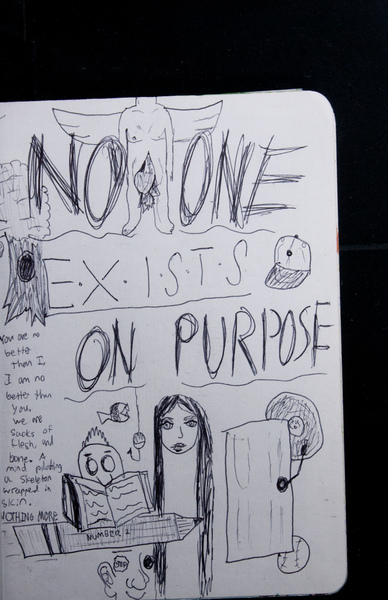 NO ONE
E.X.I.S.T.S
ON PURPOSE
You are no
better
than I,
I am no
better than
you,
we are
Sacks of
flesh and
bone. A
mind piloting
a skeleton
wrapped in
skin.
NOTHING MORE
NUMBER 2